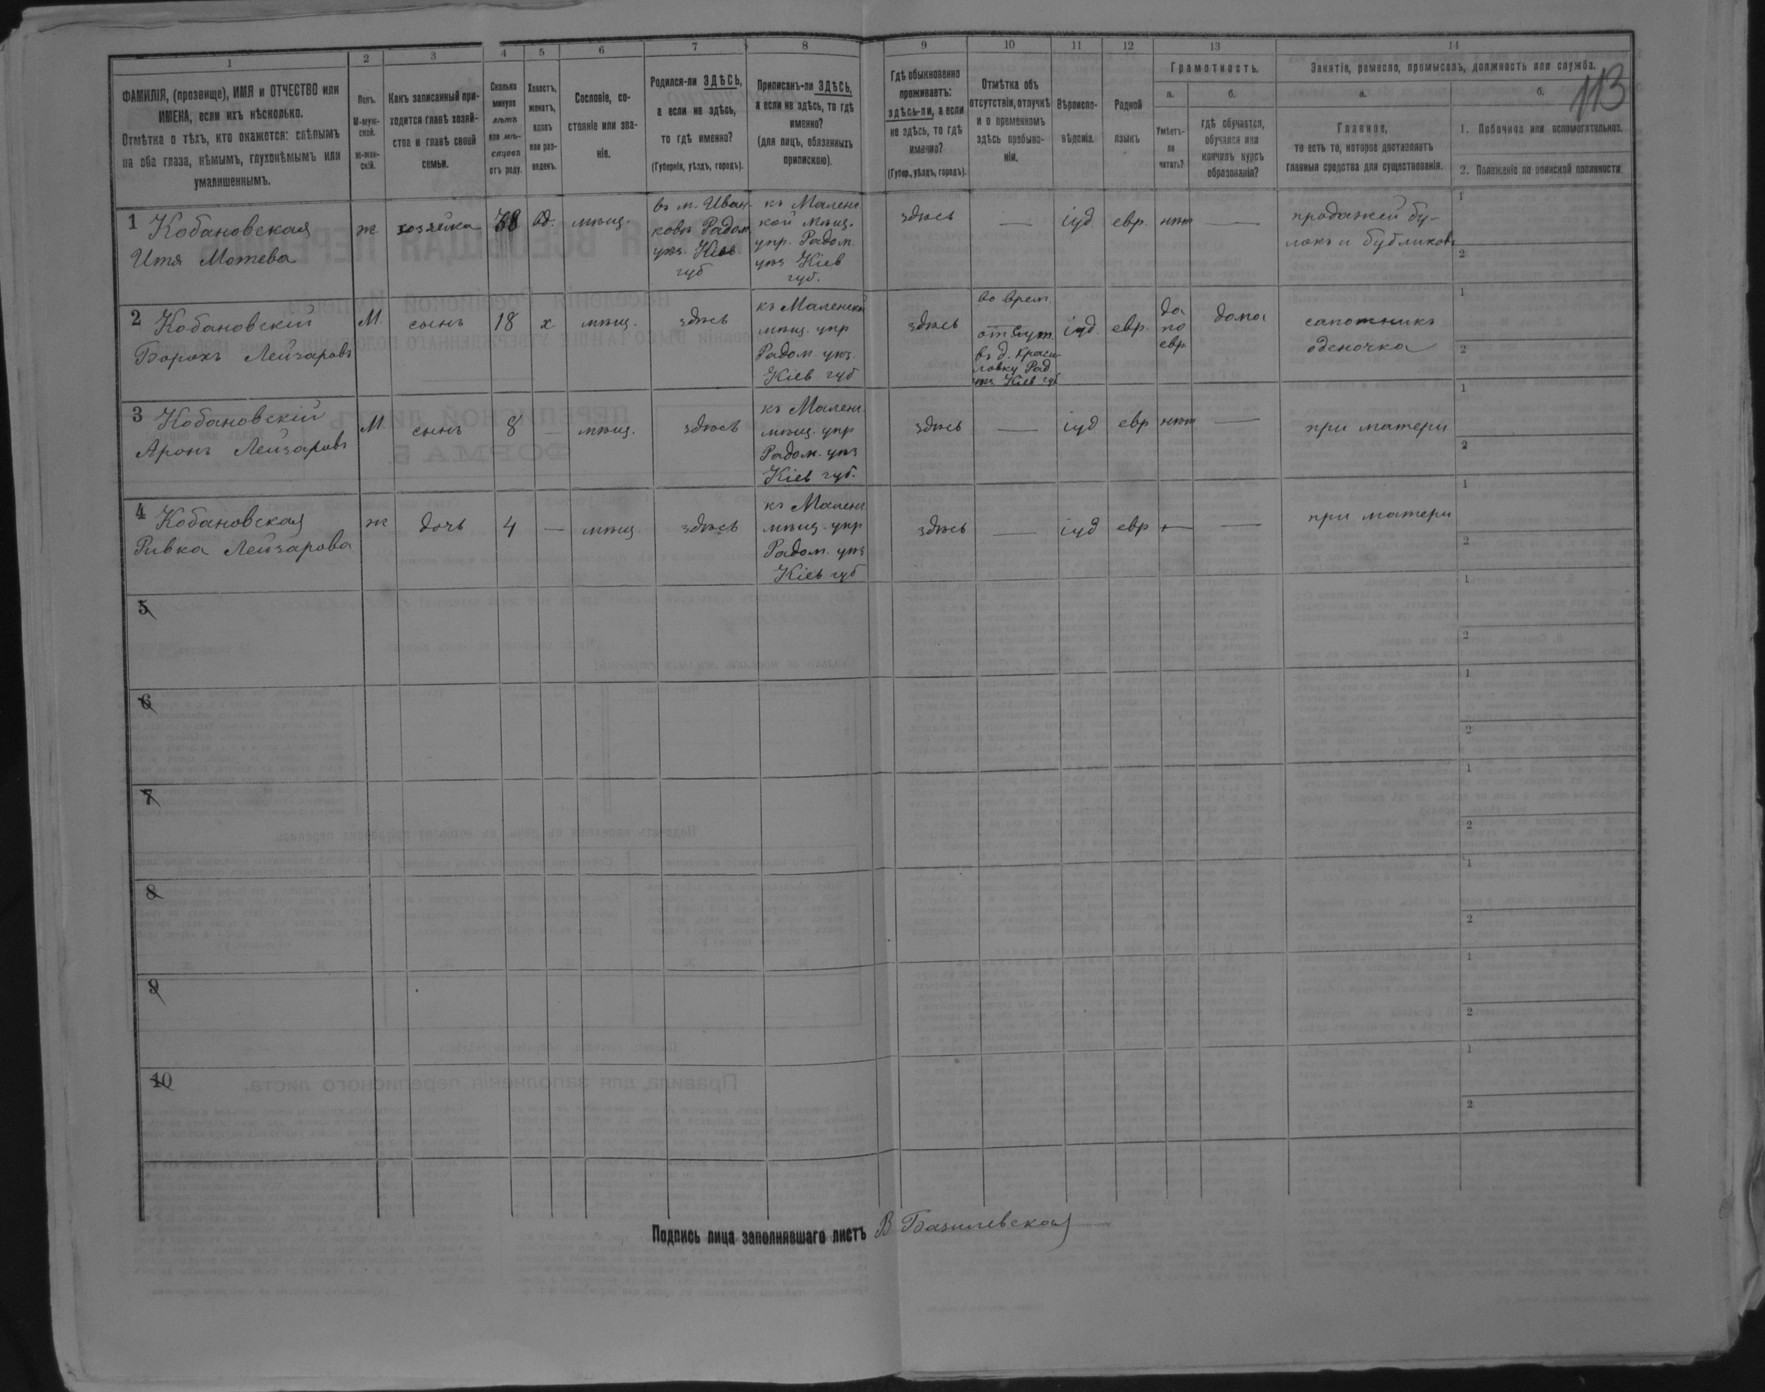 1 2 3 4 5 6 7 8 9 10 11 12 13 14
113
ФАМИЛІЯ, (прозвище), ИМЯ и ОТЧЕСТВО или
ИМЕНА, если ихъ нѣсколько.
Отмѣтка о тѣхъ, кто окажется: слѣпымъ
на оба глаза, нѣмымъ, глухонѣмымъ или
умалишеннымъ.
Полъ.
М-муж-
ской.
Ж-жен-
скій.
Какъ записанный при-
ходится главѣ хозяй-
ства и главѣ своей
семьи.
Сколько
минуло
лѣтъ
или мѣ-
сяцевъ
отъ роду.
Холостъ,
женатъ,
вдовъ
или раз-
веденъ.
Сословіе, со-
стояніе или зва-
ніе.
Родился-ли ЗДѢСЬ,
а если не здѣсь,
то гдѣ именно?
(Губернія, уѣздъ, городъ).
Приписанъ-ли ЗДѢСЬ,
а если не здѣсь, то гдѣ
именно?
(для лицъ, обязанныхъ
припискою).
Гдѣ обыкновенно
проживаетъ:
здѣсь-ли, а если
не здѣсь, то гдѣ
именно?
(Губер., уѣздъ, городъ).
Отмѣтка объ
отсутствіи, отлучкѣ
и о временномъ
здѣсь пребыва-
ніи.
Вѣроиспо-
вѣданіе.
Родной
языкъ
Грамотность.
а.
Умѣетъ-
ли
читать?
б.
гдѣ обучается,
обучался или
кончилъ курсъ
образованія?
Занятіе, ремесло, промыселъ, должность или служба.
а.
Главное,
то есть то, которое доставляетъ
главныя средства для существованія.
б.
1. Побочное или вспомогательное.
2. Положеніе по воинской повинности
1 Кобановская
Итя Мотева
ж
хозяйка
38
вд.
мѣщ.
въ м. Иван-
ковѣ Радом
уѣз. Кіев
губ
къ Малени
кой мѣщ.
упр. Радом.
уѣз Кіев
губ.
здѣсь
—
іуд
евр.
нѣт
—
продажей бу-
локъ и бубликовъ
1
2
2 Кобановскій
Борохъ Лейзаровъ
М.
сынъ
18
х
мѣщ.
здѣсь
къ Маленской
мѣщ. упр
Радом. уѣз.
Кіев губ
здѣсь
во врем.
отсут.
въ д. Краси-
ловку Рад
уѣз Кіев губ
іуд.
евр.
да
по
евр
дома
сапожникъ
одиночка
1
2
3 Кобановскій
Аронъ Лейзаровъ
М.
сынъ
8
—
мѣщ.
здѣсь
къ Мален.
мѣщ. упр
Радом. уѣз
Кіев губ.
здѣсь
—
іуд
евр
нѣт
—
при матери
1
2
4 Кобановская
Ривка Лейзарова
ж
дочь
4
—
мѣщ.
здѣсь
къ Мален
мѣщ. упр
Радом. уѣз
Кіев губ
здѣсь
—
іуд
евр
—
—
при матери
1
2
5
1
2
6
1
2
7
1
2
8
1
2
9
1
2
10
1
2
Подпись лица заполнявшаго листъ В Базилевская